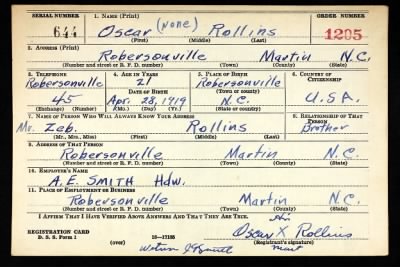 SERIAL NUMBER 1. NAME (Print) ORDER NUMBER
644 Oscar (none) Rollins 1205
(First) (Middle) (Last)
2. ADDRESS (Print)
Robersonville Martin N.C.
(Number and street or R. F. D. number) (Town) (County) (State)
3. TELEPHONE 4. AGE IN YEARS 5. PLACE OF BIRTH 6. COUNTRY OF CITIZENSHIP
Robersonville 21 Robersonville
DATE OF BIRTH (Town or county)
45 Apr. 28, 1919 N.C. U.S.A.
(Exchange) (Number) (Mo.) (Day) (Yr.) (State or country)
7. NAME OF PERSON WHO WILL ALWAYS KNOW YOUR ADDRESS 8. RELATIONSHIP OF THAT PERSON
Mr. Zeb. Rollins Brother
(Mr., Mrs., Miss) (First) (Middle) (Last)
9. ADDRESS OF THAT PERSON
Robersonville Martin N.C.
(Number and street or R. F. D. number) (Town) (County) (State)
10. EMPLOYER'S NAME
A.E. SMITH Hdw.
11. PLACE OF EMPLOYMENT OR BUSINESS
Robersonville Martin N.C.
(Number and street or R. F. D. number) (Town) (County) (State)
I AFFIRM THAT I HAVE VERIFIED ABOVE ANSWERS AND THAT THEY ARE TRUE.
His
REGISTRATION CARD Oscar X Rollins
D. S. S. Form 1 (over) 16—17105 (Registrant's signature)
Mark